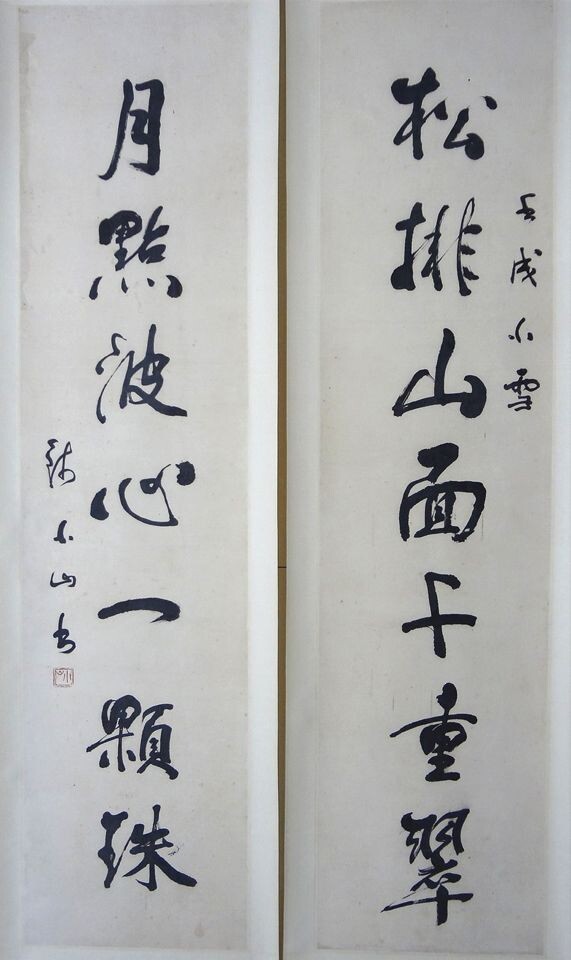 壬戌小雪
松排山面千重翠
月點波心一顆珠
錢小山書